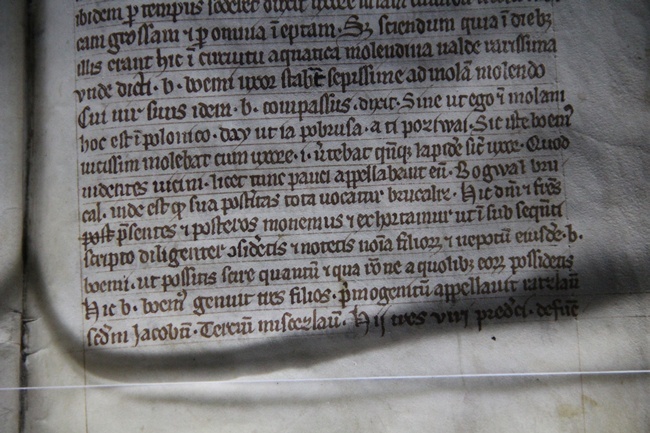 ibidem ꝑ tempus sederet dixit uxorē
cam grossam ⁊ ꝑ omnia īeptam. Sꝫ sciendum quia ī diebꝫ
illis erant hic ī circuitu aquatica molendina ualde rarissima
vnde dicti · b · boemi uxor stabat sepissime ad molā molendo
Cui uir suus idem · b · compassus · dixit · Sine ut ego ī molam
hoc est ī polonico · day ut ia pobrusa · a ti poziwai · Sic iste boemꝰ
uicissim molebat cum uxore · i · u̾tebat qn̄qꝫ lapidē sic̄ uxor · Quod
uidentes uicini · licet tunc pauci appellabant eū · Bogwal bru
cal · inde est qꝫ sua postitas tota uocatur brucalici · Hic dn̄i ⁊ fr̄es
post p̄sentes ⁊ posteros monemus ⁊ exhortamur ut ī sub seqūti
scripto diligenter ↄsiderētis ⁊ notetis noīa filioꝝ ⁊ nepotū eiusdē · b ·
boemi · ut possitis scire quantū ⁊ qua rōne a quolibꝫ eoꝝ possidetis
Hic b · boemꝰ genuit tres filios · p̄mogenitū appellauit
secd̄m Jacobū · Terciū miscezlaū · Hij tres viri predc̄i · defuē